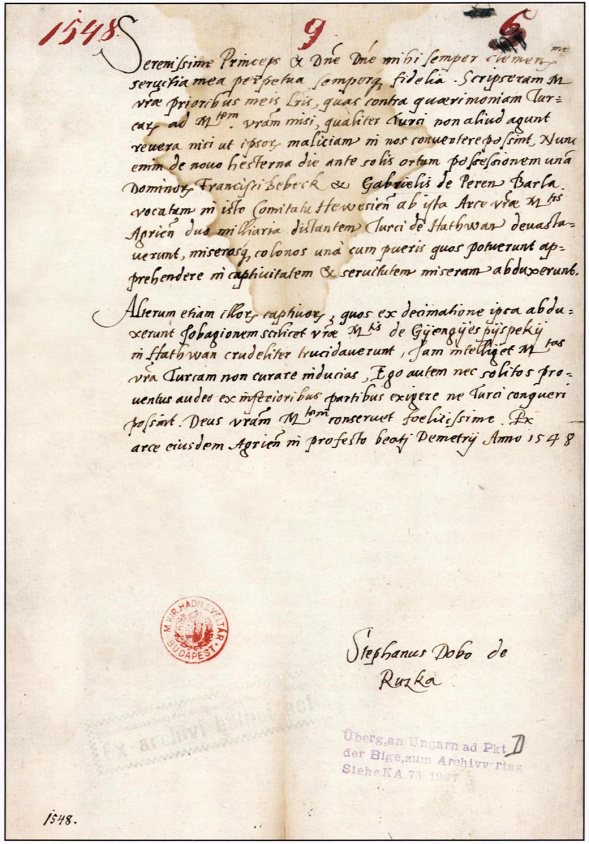 1548
9
6
Serenissime Princeps & Dne Dne mihi semper clemen me
servitia mea perpetua semperq fidelia. Scripseram M
vrae prioribus meis Lris, quas contra quaerimoniam Tur=
car ad M tem vram misi, qualiter Turci non aliud agunt
revera nisi ut ipsor maliciam in nos convertere possint, Nunc
enim de novo hesterna die ante solis ortum possessionem una
Dominor Francisci Bebeck & Gabrielis de Peren Barla
vocatam in isto Comitatu Hewesien ab ista Arce vrae M tis
Agrien duo milliaria distantem Turci de Hathwan devasta=
verunt, miserosq colonos una cum pueris quos potuerunt ap=
prehendere in captivitatem & servitutem miseram abduxerunt.
Alterum etiam illor captivor, quos ex decimatione ipsa abdu=
xerunt Jobagionem scilicet vrae M tis de Gÿengÿes pÿspekÿ
in Hathwan crudeliter trucidaverunt, Jam intelliget M tas
vra Turcam non curare inducias, Ego autem nec solitos pro=
ventus audeo ex inferioribus partibus exigere ne Turci conqueri
possint. Deus vram M tem conservet foelicissime. Ex
arce eiusdem Agrien in profesto beatj Demetrÿ Anno 1548
M. KIR. HADI LEVÉLTÁR
BUDAPEST
Stephanus Dobo de
Ruzka
Überg, an Ungarn ad Pkt D
der Blge, zum Archivvertag
Siehe KA
Ex archivi
1548.